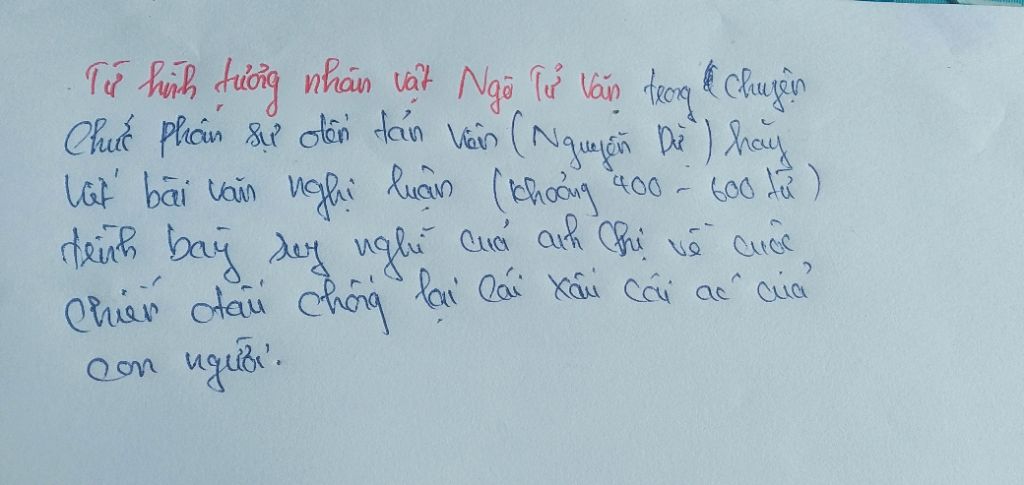 Từ hình tượng nhân vật Ngô Tử Văn trong "Chuyện
Chức phán sự đền tản Viên (Nguyễn Dữ) hãy
Viết bài văn nghị luận (khoảng 400 - 600 từ)
trình bày suy nghĩ của anh Chị về cuộc
Chiến đấu chống lại cái xấu cái ác của
con người.